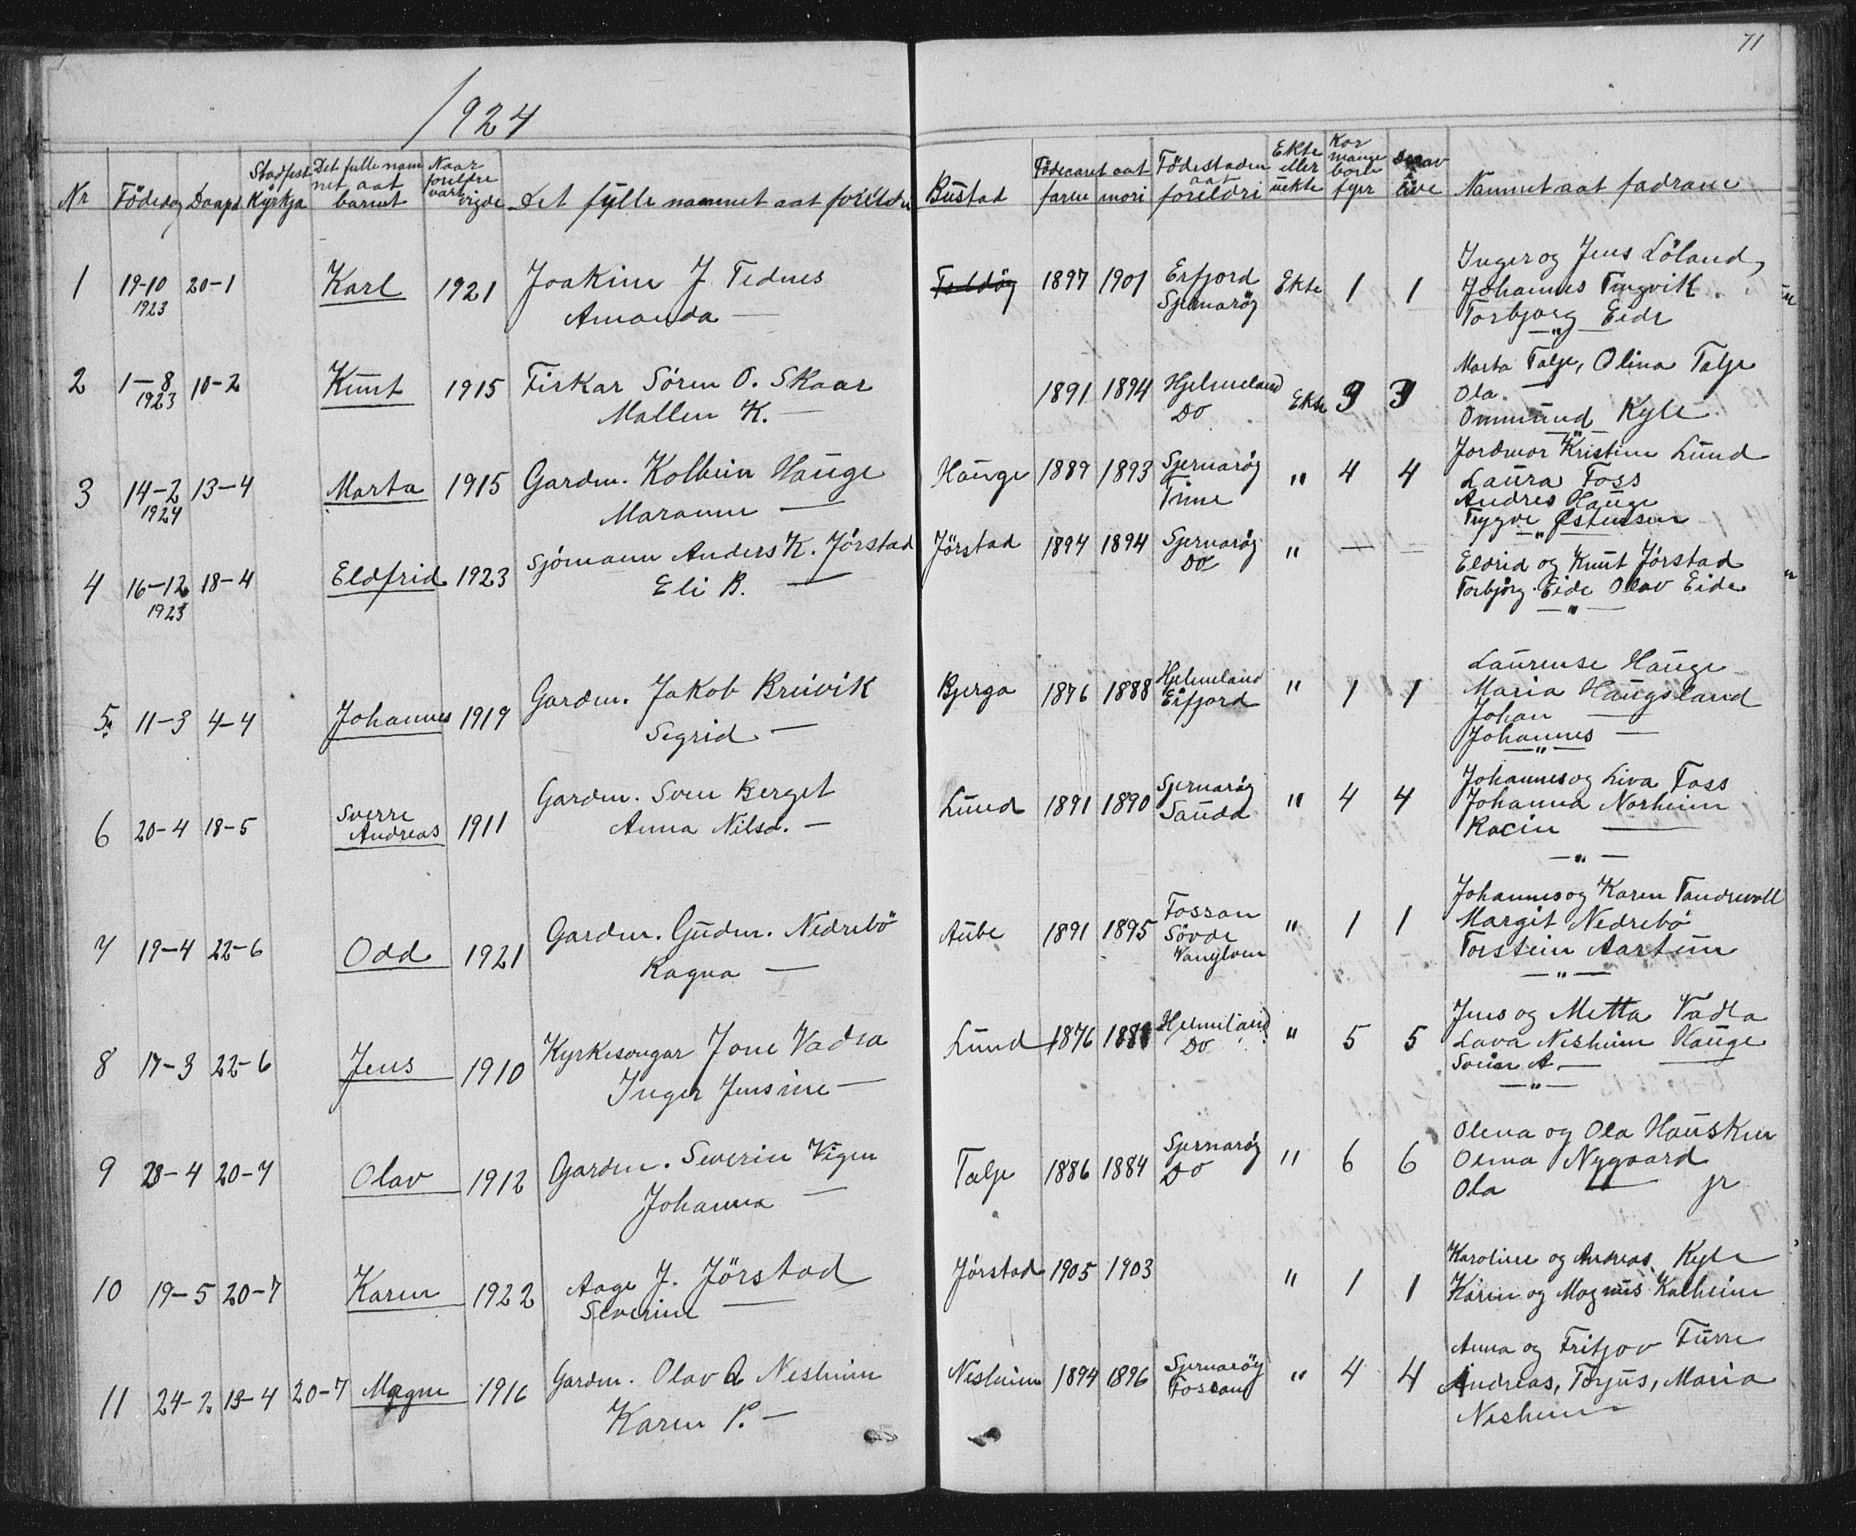 71
1924
Nr Födedag Daapd Stadfest Kyrkja Det fulle namnet aat barnet Naar foreldre vart vigde Det fylle nammet aat foreldri Bustad Födeaaret aat faren mori Födestaden aat foreldri Ekte eller uekte Kor mange born fyrr Derav live Nammet aat fadrane
1 19-10 1923 20-1 Karl 1921 Joakim J Tednes Földöy 1897 1901 Erfjord Ekte 1 1 Inger og Jens Löland,
Amanda — Sjernaröy Johannes Tingvik.
Torbjorg Eide
— " —
2 1-8 1923 10-2 Knut 1915 Fiskar Sören O. Skaar 1891 1894 Hjelmeland Ekte 3 3 Marta Talje, Olina Talje
Mallen K. — Do Ola. —
Ommund Kyle
3 14-2 1924 13-4 Marta 1915 Gardm. Kolbein Hauge Hauge 1889 1893 Sjernaröy " 4 4 Jordmor Kristine Lund
Maranne — Time Laura Foss
Andres Hauge
Trygve Østensen
— " —
4 16-12 1923 18-4 Eldfrid 1923 Sjömann Anders K. Jörstad Jörstad 1894 1894 Sjernaröy " — — Eldrid og Knut Jörstad
Eli B. — Do Torbjörg Eide Olav Eide
— " —
5 11-3 4-4 Johannes 1919 Gardm. Jakob Breivik Bjerga 1876 1888 Hjelmeland " 1 1 Laurense Hauge
Segrid — Erfjord Maria Haugsland
Johan —
Johannes —
— " —
6 20-4 18-5 Sverre Andreas 1911 Gardm. Sven Berget Lund 1891 1890 Sjernaröy " 4 4 Johannes og Liva Foss
Anna Nilsd. — Sauda Johanna Norheim
Racin —
— " —
7 19-4 22-6 Odd 1921 Gardm. Gudm. Nedrebö Aube 1891 1895 Fossan " 1 1 Johannes og Karen Tandrevoll
Ragna — Sövde Margit Nedrebö
Vanylven Torstein Aartun
— " —
8 17-3 22-6 Jens 1910 Kyrkesongar Jone Vadla Lund 1876 1881 Hjelmeland " 5 5 Jens og Metta Vadla
Inger Jensine — Do Lava Nesheim Hauge
Svein A. — —
— " —
9 28-4 20-7 Olav 1912 Gardm. Severin Vigen Talje 1886 1884 Sjernaröy " 6 6 Olena og Ola Hausken
Johanna — Do Olina Nygaard
Ola — jr
10 19-5 20-7 Karen 1922 Aage J. Jörstad Jörstad 1905 1903 " 1 1 Karoline og Andreas Kyle
Severine — Karin og Magnus Kalheim
11 24-2 13-4 20-7 Magne 1916 Gardm. Olav A Nesheim Nesheim 1894 1896 Sjernaröy " 4 4 Anna og Fritjov Furre
Karen P. — Fossan Andreas, Torjus, Maria
Nesheim